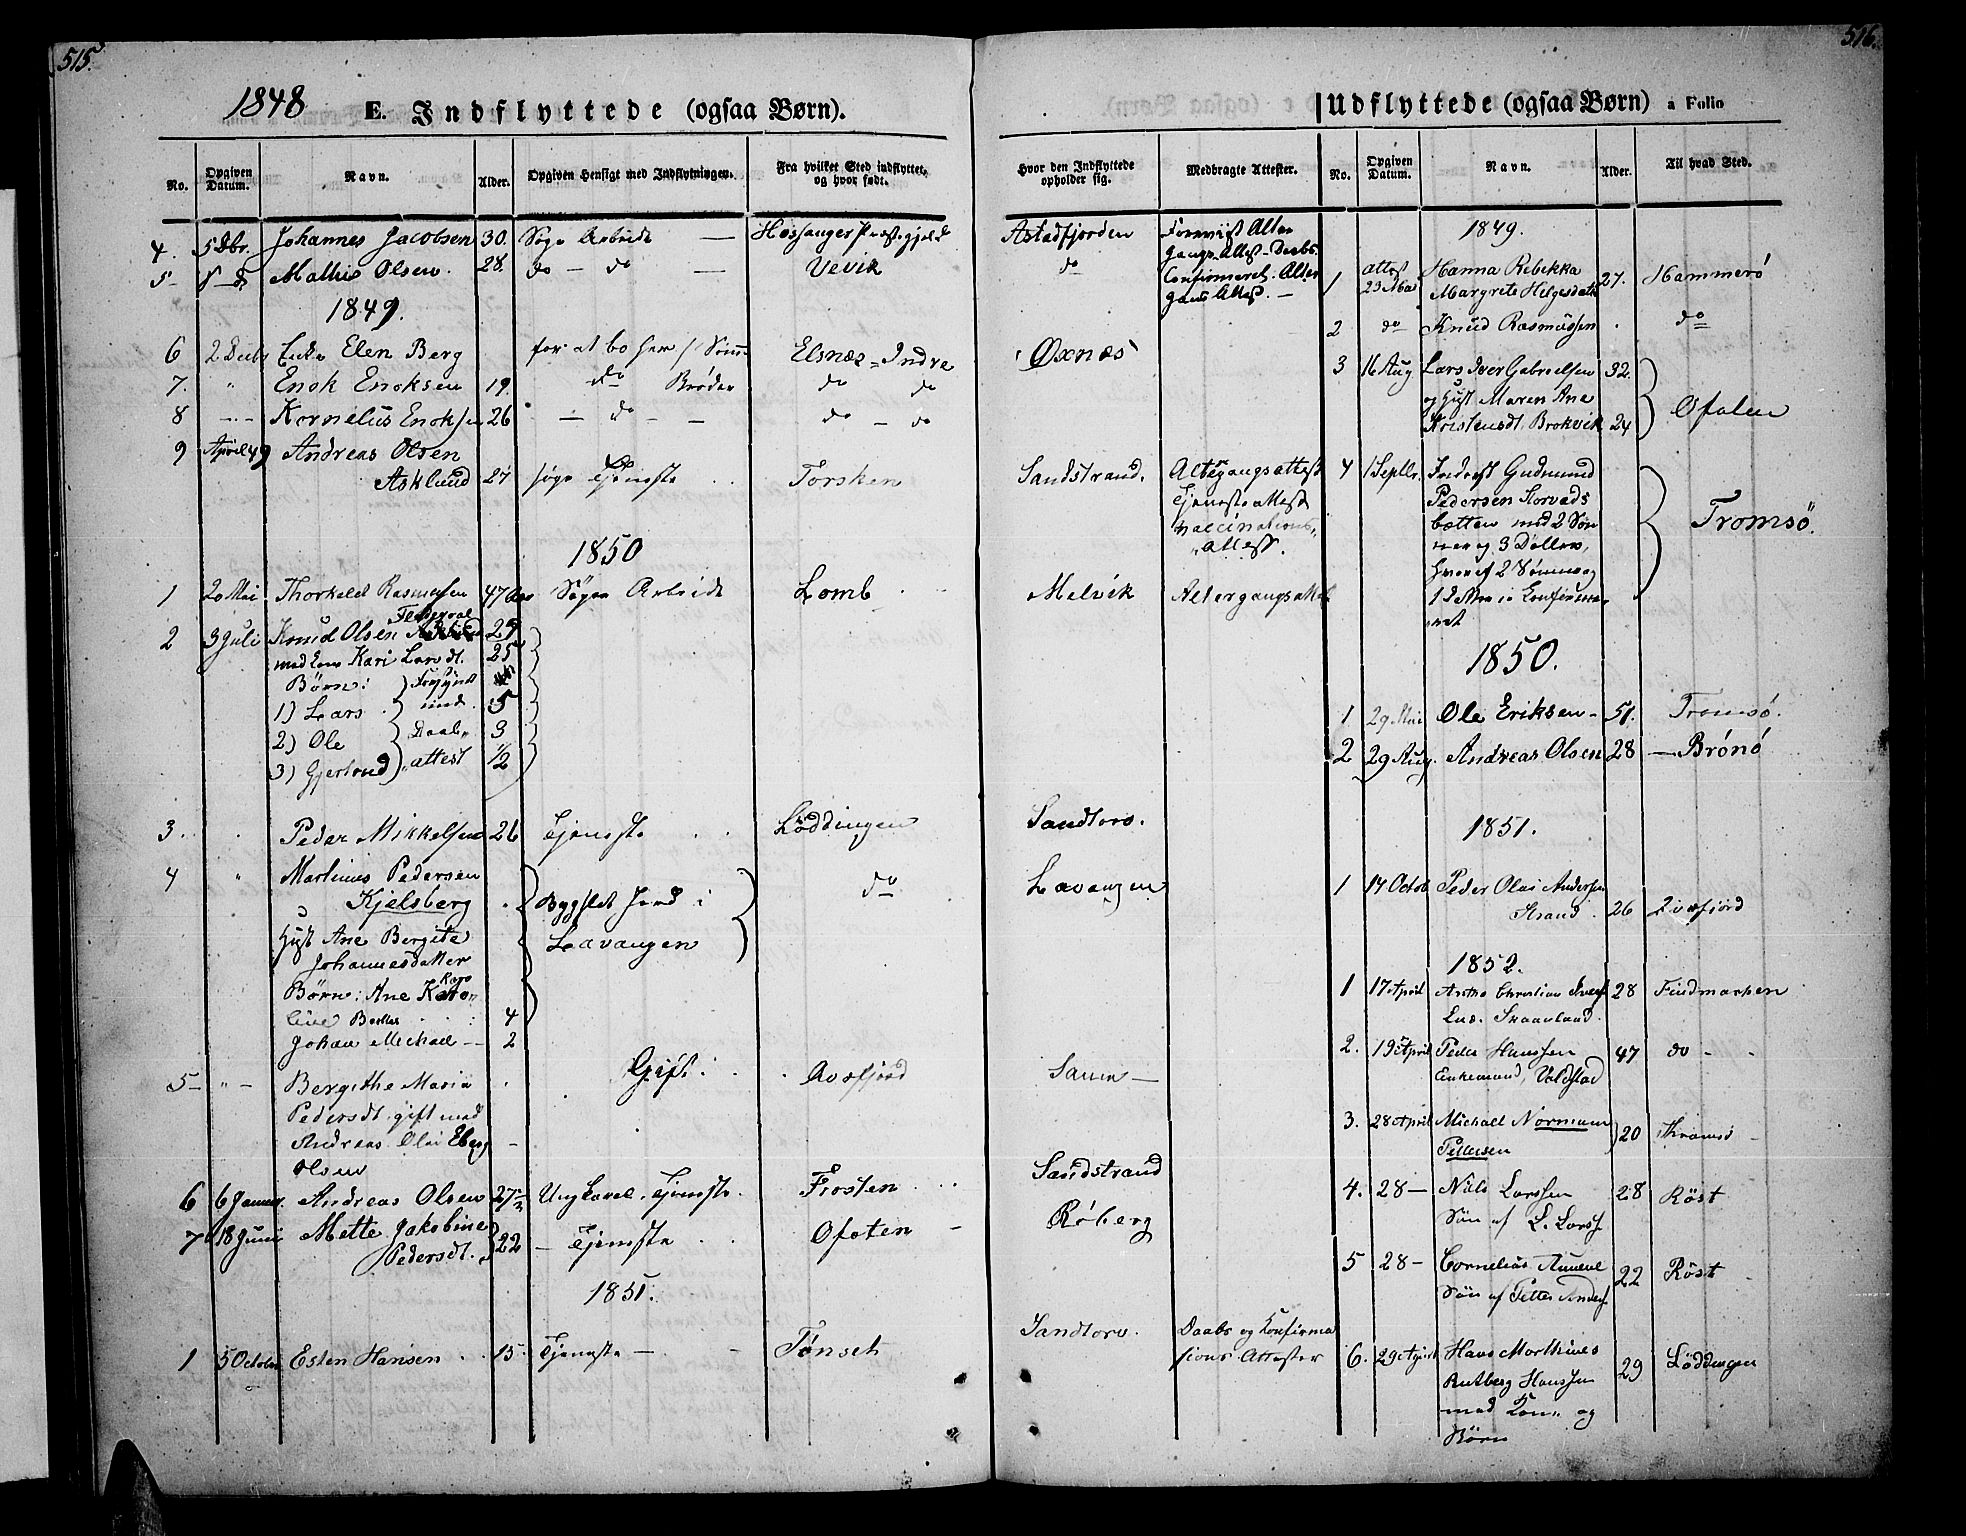 515.
1848 E. Indflyttede (ogsaa Børn).
No. Opgiven Datum. Navn. Alder. Opgiven Hensigt med Indflytningen. Fra hvilket Sted indflyttet, og hvor født.
4. 5 Johannes Jacobsen 30. Søge Arbeide —
5 Mathis Olsen. 28. do — do — Vevik
1849.
6 Enke Elen Berg for at bo her Elsnæs = Indre
7. " Enok Enoksen 19. do Brøder do do
8 Kornelius Enoksen 26 — do — — do — do
9 April 49 Andreas Olsen
Asklund 27 søge Tjeneste Torsken
1850
1 20 Mai Thorkeld Rasmusen 47 Aar Søge Arbeide Lomb
2 3 Juli Knud Olsen 29
med Kari Larsdt. 25
Børn:
1) Lars 5
2) Ole Daabs 3
3) Gjertrud attest 1/2
3. Peder Mikkelsen 26 Tjeneste Löddingen
4 " Martinus Pedersen
Kjelsberg Bygslet Jord i do
Hust Ane Bergite Lavangen
Johannesdatter
Børn: Ane Karo
line 4
Johan Michael — 2
5 — " — Bergithe Maria Gift
Pedersdt. gift med
Andreas Olai Eberg
Olsen
6 6 Januar. Andreas Olsen 27 Ungkarl. Tjeneste. Frosten
7 18 Juni Mette Jakobine
Pedersdt. 22 — Tjeneste Ofoten
1851.
1 5 October Esten Hansen 15. Tjeneste — Tønset
516.
Udflyttede (ogsaa Børn) a Folio
Hvor den Indflyttede opholder sig. Medbragte Attester. No. Opgiven Datum. Navn. Alder. Til hvad Sted.
Astadfjorden Foreviist Alter
gangs Attest - Daabs
do Confirmeret. Alter
gans Attest. —
Oxnæs
Sandstrand. Altergangsattest
Tjenesteattest
Vaccinations
attest.
Melvik Altergangsattest
Sandtorv.
Lavangen
Sandstrand
Röberg
Sandtorv. Daabs og Konfirma
tions Attester
1849.
1 attest 23 Mai Hanna Rebekka
Margrete Helgesdatt 27. Hammerö
2 do Knud Rasmussen do
3 16 Aug Lars Iver Gabrielsen 32.
og Hust Maren Ane
Kristensdt. Brokvik 24 Ofoten
4 1 Septbr. Inderst Gudmund
Pedersen
med 2 Søn
ner og 3 Døttre, Tromsö.
hvoraf 2 Sønner og
1850.
1 29 Mai Ole Eriksen — 51. Tromsö.
2 29 Aug. Andreas Olsen 28 — Brönö
1851.
1 14 Octob Peder Olai Andersen
Strand. 26
1852.
1 17 April Christian 28 Findmarken
Skaanland.
2. 19 April Peder Hanssen 47 do —
Enkemand, Voldstad
3. 28 April Michael Normann
Pettersen 20 Thromsö
4. 28 — Nils Larssen 28 Röst
Søn af L. Larss.
5 28 — Cornelius
Søn af Petter Anders 22 Röst
6. 29 April Hans Marthines
Rutberg Hanssen 29 Löddingen
med Kone og
Börn